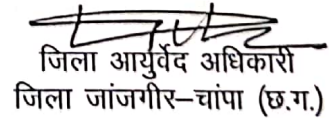 जिला आयुर्वेद अधिकारी
जिला जांजगीर–चांपा (छ.ग.)